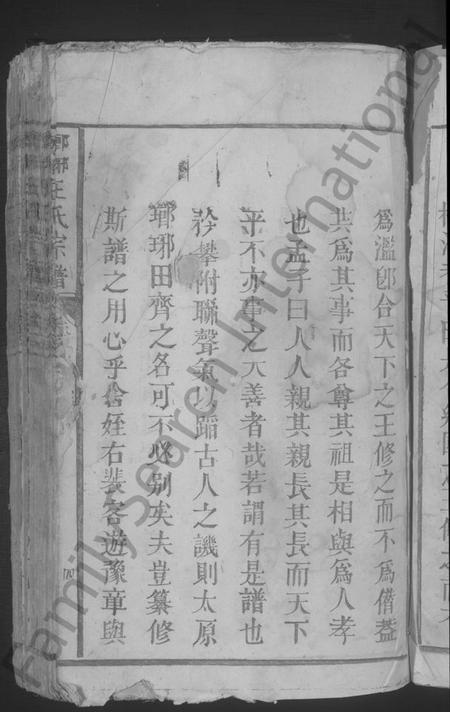 為濫卽合天下之王修之而不為僭蓋
共為其事而各尊其祖是相與為人孝
也孟子曰人人親其親長其長而天下
平不亦事之大善者哉若謂有是譜也
矜攀附聯聲氣以蹈古人之譏則太原
瑯琊田齊之名可不必别矣夫豈纂修
斯譜之用心乎舍姪右裴客遊豫章與
王氏宗譜
FamilySearch International